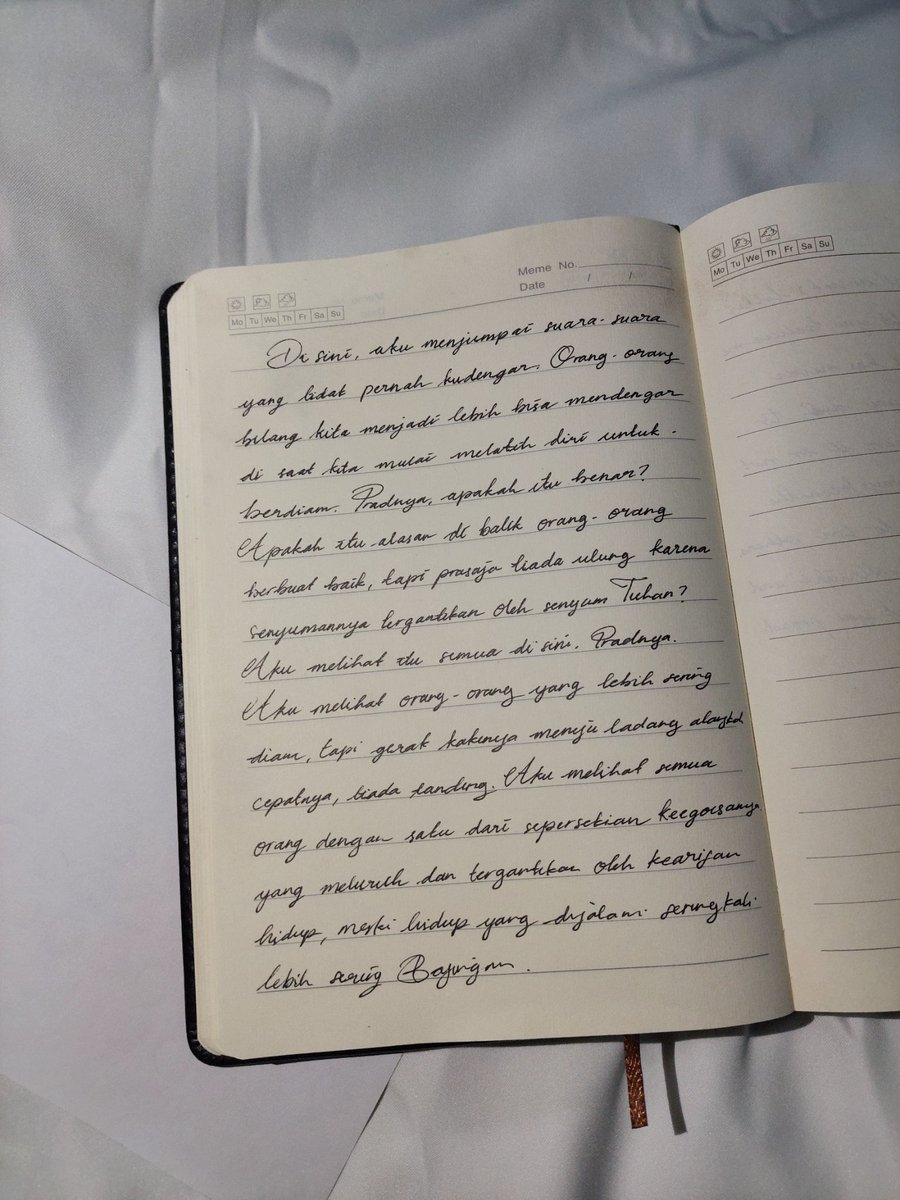 Meme No.
Date / /
Mo Tu We Th Fr Sa Su
Di sini, aku menjumpai suara-suara
yang tidak pernah kudengar. Orang-orang
bilang kita menjadi lebih bisa mendengar
di saat kita mulai melatih diri untuk
berdiam. Pradnya, apakah itu benar?
Apakah itu alasan di balik orang-orang
berbuat baik, tapi prasaja tiada ulung karena
senyumannya tergantikan oleh senyum Tuhan?
Aku melihat itu semua di sini. Pradnya.
Aku melihat orang-orang yang lebih sering
diam, tapi gerak kakinya menuju ladang alangkah
cepatnya, tiada tanding. Aku melihat semua
orang dengan satu dari sepersekian keegoisannya
yang meluruh dan tergantikan oleh kearifan
hidup, meski hidup yang dijalani seringkali
lebih sering Bajingan.
Mo Tu We Th Fr Sa Su